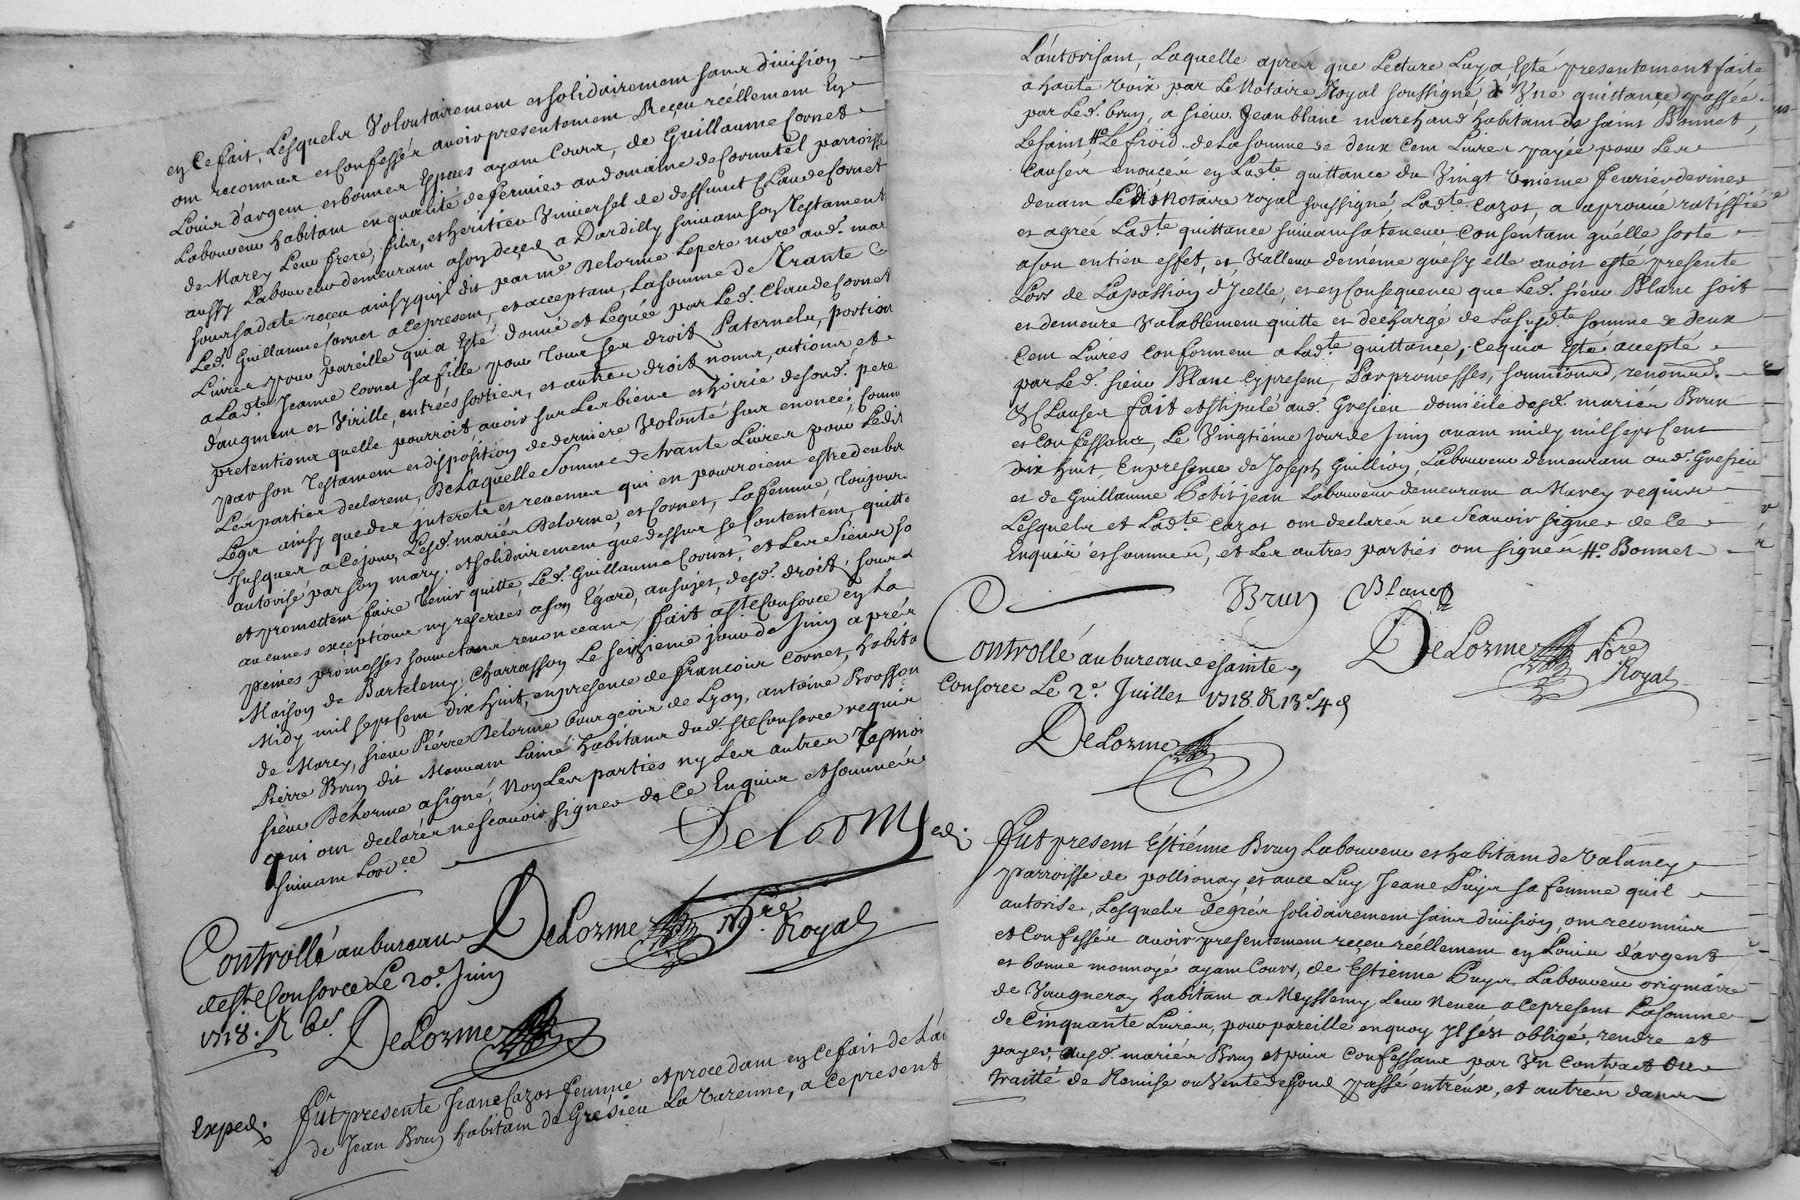 en ce fait, Lesquels Volontairement et solidairement sans division
ont reconnus et confessés avoir presentement Reçeu réellement En
Louis d'argent et bonnes Espèces ayant Cours, de Guillaume Cornet
Laboureur habitant en qualité de fermier au domaine de Cornutel parroisse
de Marcy Leur frere, fils, et heritier Universel de deffunt Claude Cornet
aussy Laboureur demeurant a son deçed a Dardilly suivant son Testament
sous sa date reçeu ainsy quil dit par me Delorme Le pere nore aud. mar
Led. Guillaume Cornet a ce present, et acceptant, La somme de Trante
Livres pour pareille qui a Esté donné et Leguée par Led. Claude Cornet
a Lad.te Jeanne Cornet sa fille pour Tous ses droit Paternels, portion
d'augment et Virille, entrées sorties, et autres droit noms, actions, et
pretentions quelle pourroit avoir sur Les biens et hoirie de sond. pere
par son Testament et disposition de derniere Volonté sus enoncé; comme
Les parties declarent, De Laquelle Somme de trante Livres pour Ledit
Legs ainsy que des interets et revenus qui en pourroient estre deubs
Jusques a ce jour, Lesd. mariés Delorme, et Cornet, La femme, Toujours
autorisé par son mary, et solidairement que dessus se Contentent, quitte
et promettent faire tenir quitte, Led. Guillaume Cornet, et Les Siens so
aucunes exceptions ny reserves a son Egard, au sujet, desd. droit, sous
peines promesses soumettans renonceans, fait a Ste Consorce en La
Maison de Bartelemy Charrasson Le seizieme jour de Juin après
Midy mil sept cent dix huit, en presence de françois Cornet, habita
de Marcy, sieur Pierre Delorme bourgeois de Lyon, antoine Brosson
Pierre Brun dit Mouvant L'aîné habitans dud. Ste Consorce requis
sieur Delorme a signé, Non Les parties ny Les autres Tesmoi
qui ont declarés ne scavoir signer de Ce Enquis et sommés
suivant L'ord.ce
Delorme
Controllé au bureau
de Ste Consorce Le 20e Juin
1718. R
DeLorme Nre Royal
DeLorme
Exped. fut presente Jeane Cazot femme et procedant en Ce fait de L'au
de Jean Brun habitant de Gresieu La Varenne, a ce present
L'autorisant, Laquelle après que Lecture Luy a Esté presentement faite
a haute voix par Le Notaire Royal soussigné d'Vne quittance passée
par Led. brun, a sieur Jean blanc marchand habitant de saint Bonnet,
Le froid de La somme de deux Cent Livres payée pour Les
Causes enoncés en Lad.te quittance du Vingt Vnieme feuvrier dernier
devant Led. Notaire royal soussigné, Lad.te Cazot, a aprouvé ratiffié
et agréé Lad.te quittance suivant sa teneur Consentant qu'elle sorte
a son entier effet, et valleur de même que sy elle avoit esté presente
Lors de La passation d'Jcelle, et en Consequence que Led. sieur Blanc soit
et demeure Valablement quitte et dechargé de La susd.te somme de deux
Cent Livres Conforment a Lad.te quittance; Ce qui a Esté accepté
par Led. sieur Blanc cy present, Par promesses, renond.
& Clauses fait et stipulé aud. Gresieu domicile desd. mariés Brun
et Confessans, Le Vingtiéme Jour de Juin avant midy mil sept Cent
dix huit, En presence de Joseph Guillion, Laboureur demeurant aud. Gresieu
et de Guillaume Petitjean Laboureur demeurant a Marcy requis
Lesquels et Lad.te Cazot ont declarés ne Scavoir signer de Ce
Enquis et sommés, et Les autres parties ont signés Bonnet
Brun Blanc
Controllé au bureau de sainte
Consorce Le 2e. Juillet 1718. R 13s. 4d
DeLorme Nore Royal
DeLorme
Exped. fut present Estiénne Brun Laboureur et habitant de Valency
parroisse de pollionay, et avec Luy Jeane Puys sa femme quil
autorise, Lesquels de grés solidairement sans division, ont reconnus
et Confessés avoir presentement reçeu réellement en Louis d'argent
et bonne monnoyé ayant Cours, de Estienne Puys Laboureur originaire
de Vaugneray habitant a Meyssemy Leur Neveu a ce present La somme
de Cinquante Livres, pour pareille en quoy Jl s'est obligé, rendre et
payer, ausd. mariés Brun et puis Confessans par Vn Contract ou
traitté de Remise ou Vente de fond passé entreux, et autrés dans